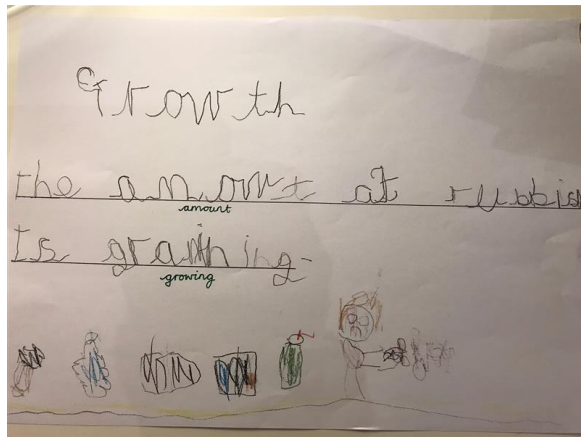 Growth
the amowt at rubbis
amount
Is grawing
growing